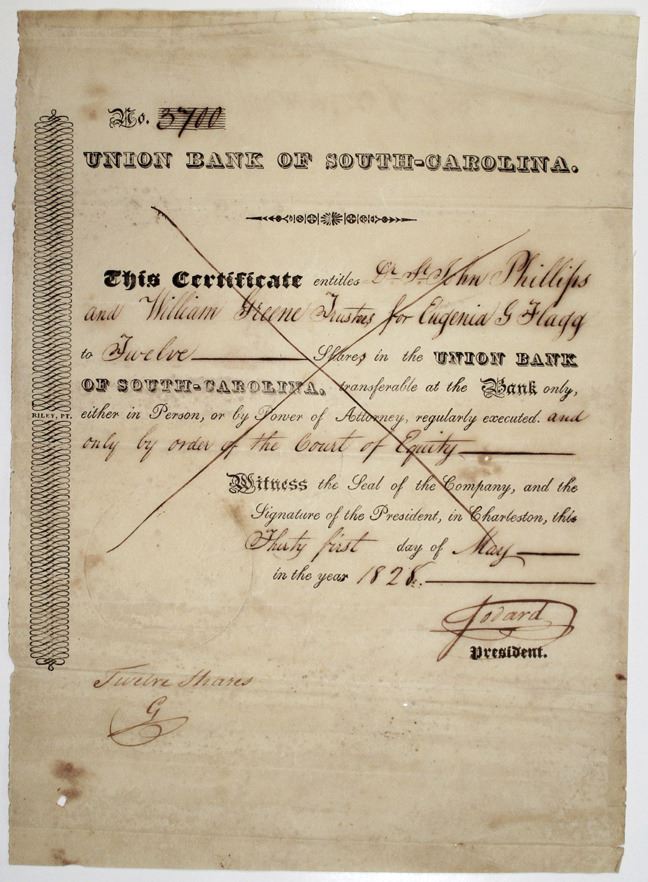 No. 3700
UNION BANK OF SOUTH-CAROLINA.
This Certificate entitles Dr. St. John Phillips
and William Greene Trustees for Eugenia G Flagg
to Twelve Shares in the UNION BANK
OF SOUTH-CAROLINA, transferable at the Bank only,
either in Person, or by Power of Attorney, regularly executed. and
RILEY, PT.
only by order of the Court of Equity
Witness the Seal of the Company, and the
Signature of the President, in Charleston, this
Thirty first day of May
in the year 1828.
President.
Twelve Shares
G